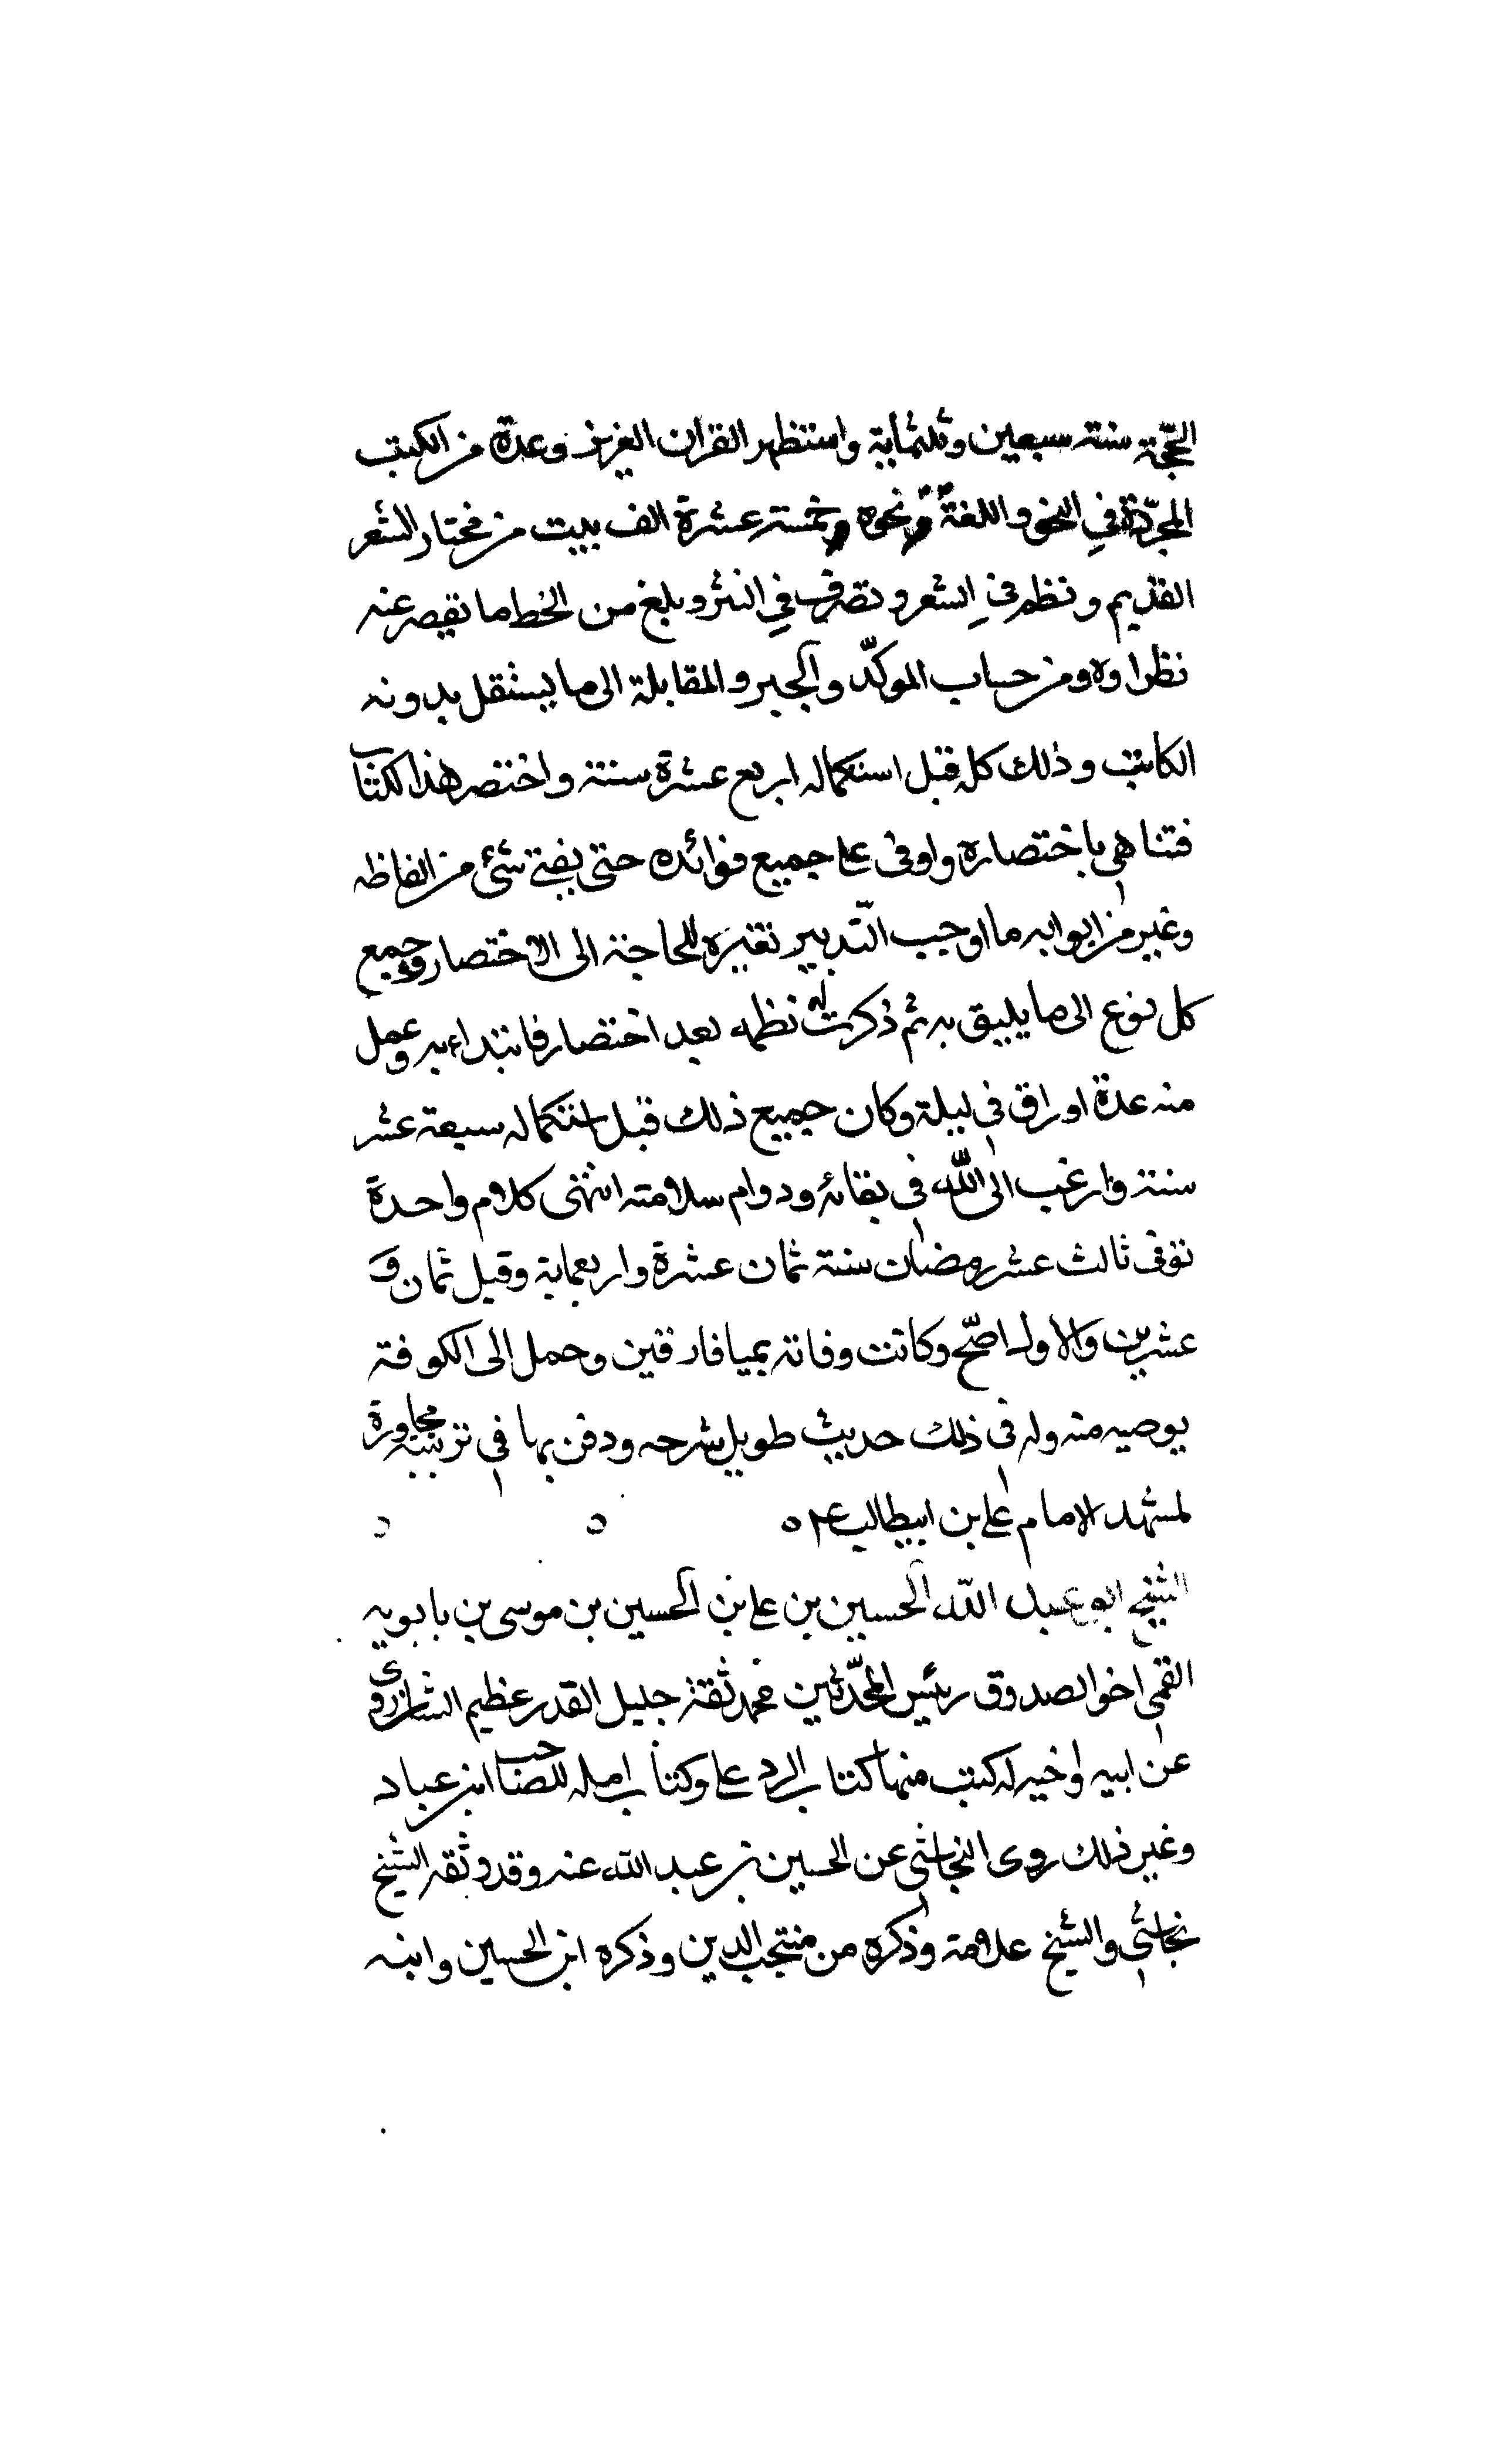 الحجّة سنة سبعين وثلثمایة واستظهر القران العزیز وعدة من الکتب
المجرّدة في النحو واللغة ونحوه وخمسة عشرة الف بیت من مختار الشعر
القدیم ونظم في الشعر وتصرف في النثر وبلغ من الخط ما یقصر عنه
نظراوه ومن حساب الموکدّ والجبر والمقابلة الی ما یستقل بدونه
الکاتب وذلك کله قبل استکماله اربع عشرة سنة واختصر هذا الکتاب
فتناهی باختصاره واوفی علی جمیع فوائده حتی یفته شئ من الفاظه
وغیر من ابوابه ما اوجب التّدبیر تغیره للحاجة الی الاختصار وجمیع
کل نوع الی ما یلیق به ثم ذکرت له نظمه بعد اختصار فابتداء به وعمل
منه عدة اوراق في لیلة وکان جمیع ذلك قبل استکماله سبعة عشر
سنة وارغب الی اللّه في بقائه ودوام سلامته انتهی کلام واحدة
توفی ثالث عشر رمضان سنة ثمان عشرة واربعمایة وقیل ثمان و
عشرین والاول اصّح وکانت وفاته بمیافارقین وحمل الی الکوفة
بوصیه منه وله في ذلك حدیث طویل شرحه ودفن بها في تربته مجاورة
لمشهد الامام علی بن ابیطالب ع م
الشیخ ابو عبد اللّه الحسین بن علی بن الحسین بن موسی بن بابویه
القمی اخو الصدوق رئیس المحدّثین محمد ثقة جلیل القدر عظیم الشان روی
عن ابیه واخیه له کتب منها کتاب الرد علی وکتاب عمله للصاحب ابن عباد
وغیر ذلك روی النجاشي عن الحسین بن عبد اللّه عنه وقد وثقه الشیخ
نجاشي والشیخ علامة وذکره من منتجب الدین وذکره ابن الحسین وابنه